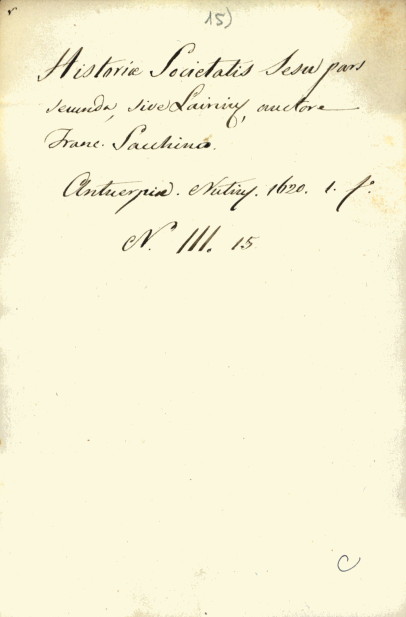 15)
Historiæ Societatis Jesu pars
secunda, sive Lainius, auctore
Franc. Sacchino.
Antuerpiæ. Nutius. 1620. 1. f.
N.º III. 15
C